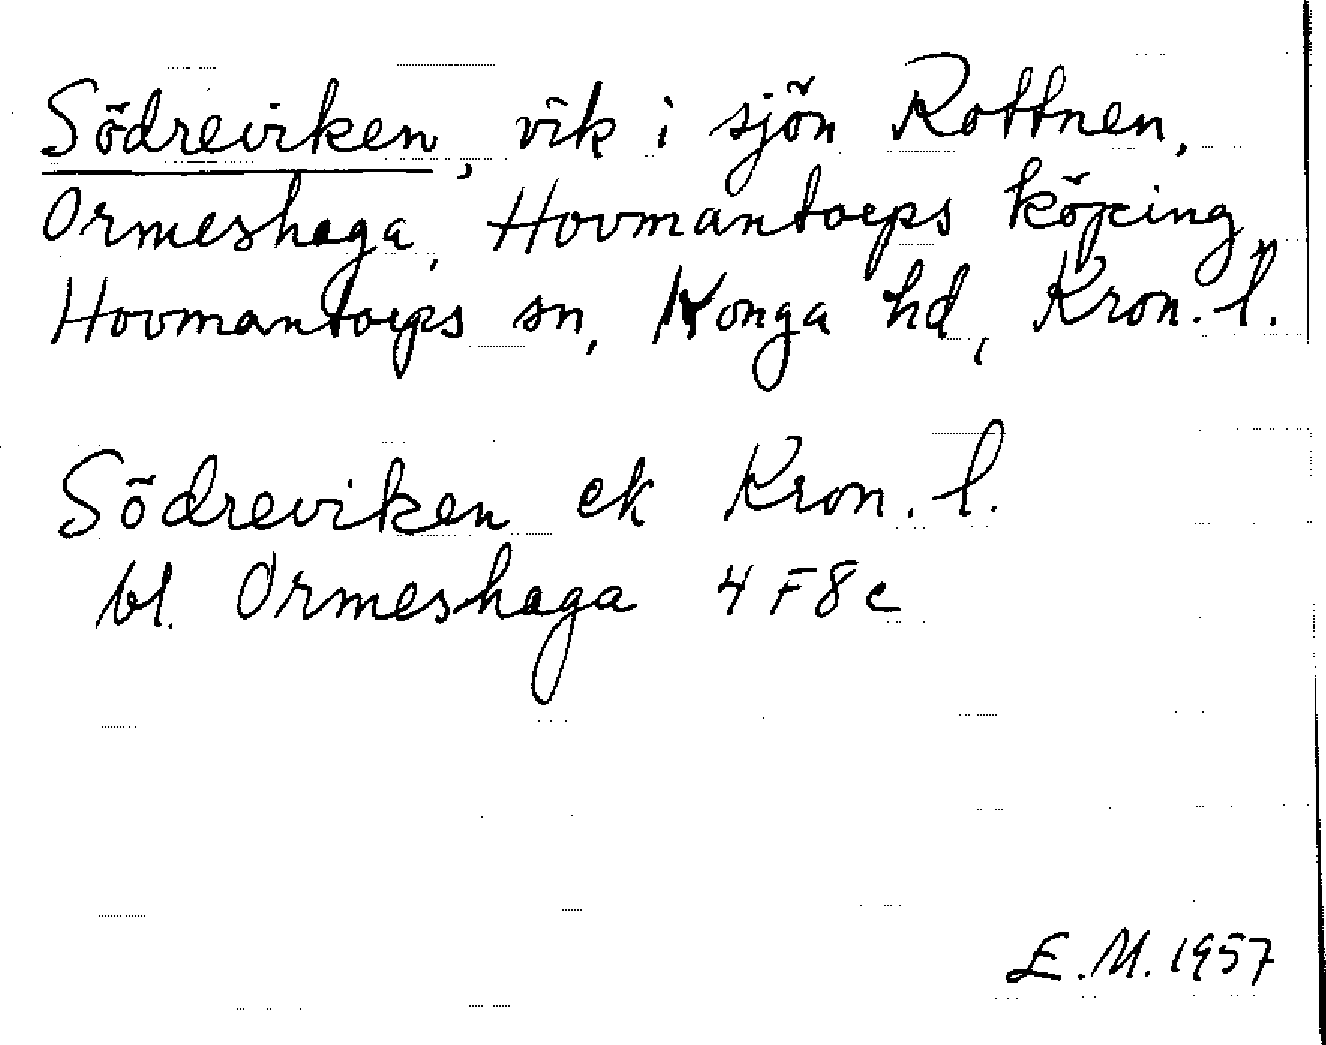 Södreviken, vik i sjön Rottnen,
Ormeshaga, Hovmantorps köping,
Hovmantorps sn, Konga hd, Kron. l.
Södreviken ek Kron. l.
bl. Ormeshaga 4 F 8 c
E.M. 1957